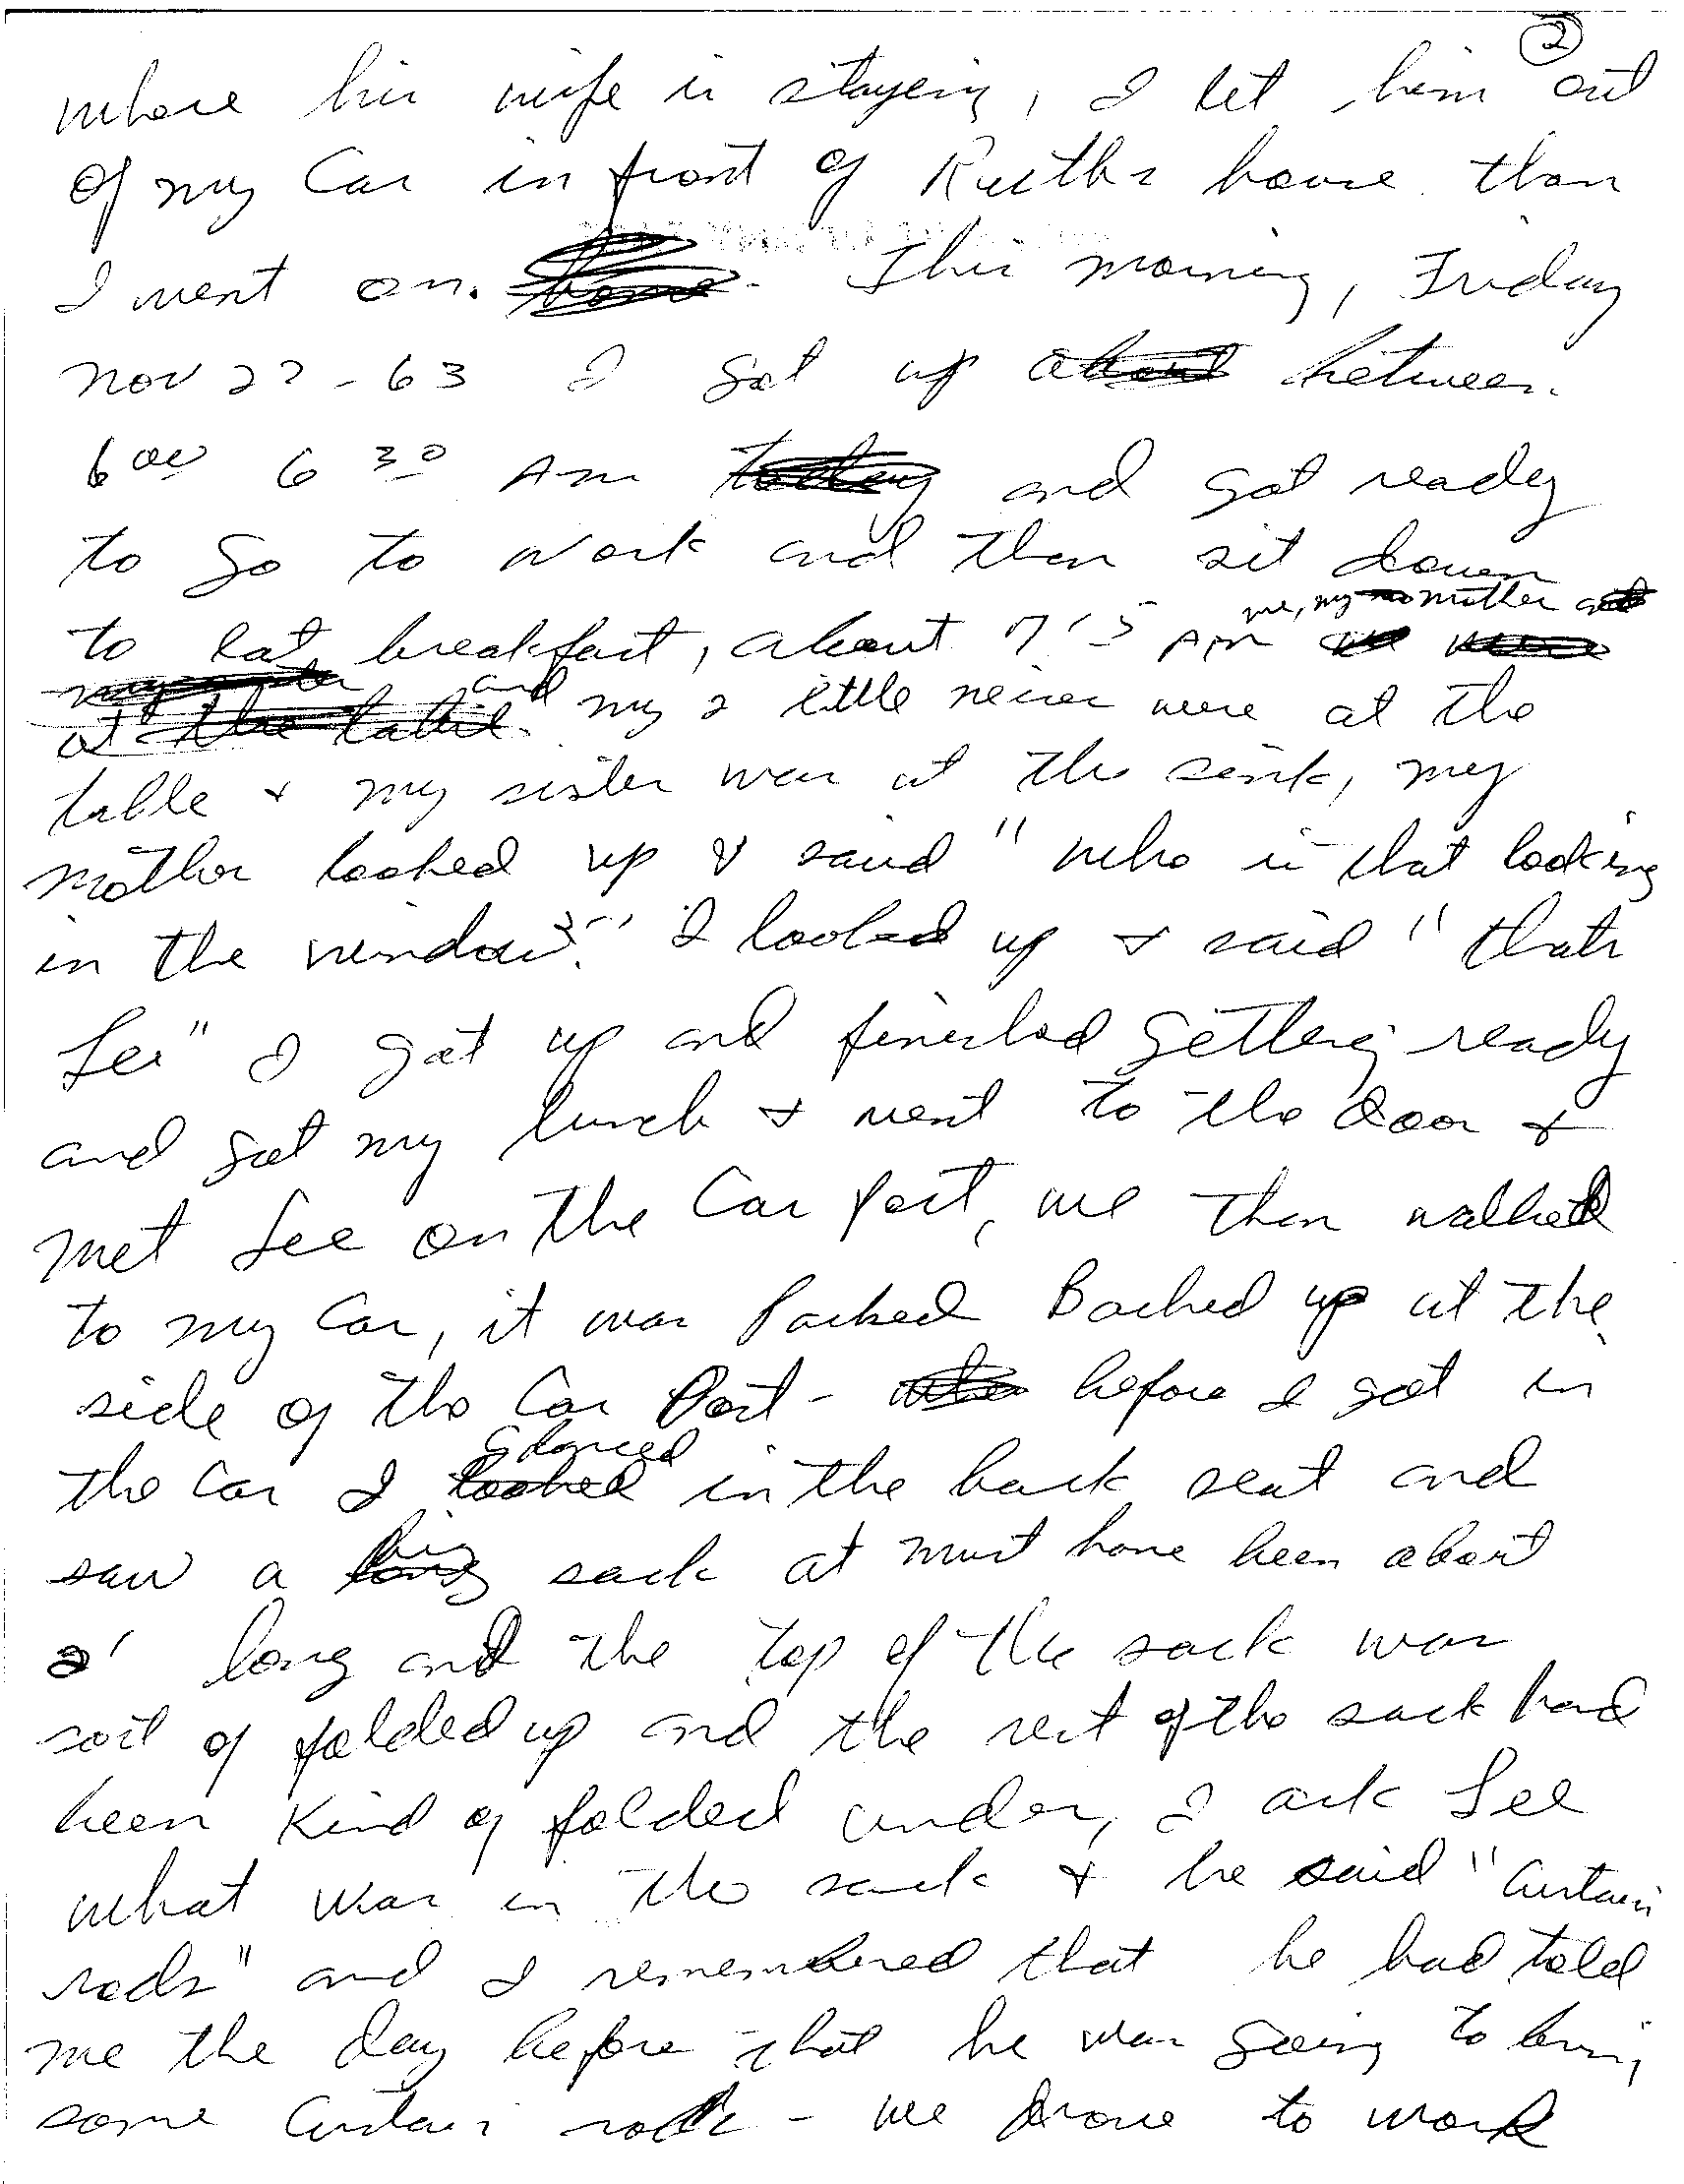 2
where his wife is staying, I let him out
of my Car in front of Ruth's house. than
I went on. home. This morning, Friday
Nov 22 - 63 I got up about between
6 00 6 30 Am today and got ready
to go to work and then sit down
me, my mother and
to eat breakfast, about 7 15 Am we were
my sister and
at the table my 2 little neices were at the
table & my sister was at the sink, my
mother looked up & said "who is that looking
in the window?" I looked up & said "thats
Lee" I got up and finished getting ready
and got my lunch & went to the door &
met Lee on the Car port, we then walked
to my Car, it was Parked Backed up at the
side of the Car Port - when before I got in
Glanced
the Car I looked in the back seat and
big
saw a long sack at must have been about
2' long and the top of the sack was
sort of folded up and the rest of the sack had
been kind of folded under, I ask Lee
what was in the sack & he said "Curtain
rods" and I remembered that he had told
me the day before that he was going to bring
some Curtain rods - we drove to work